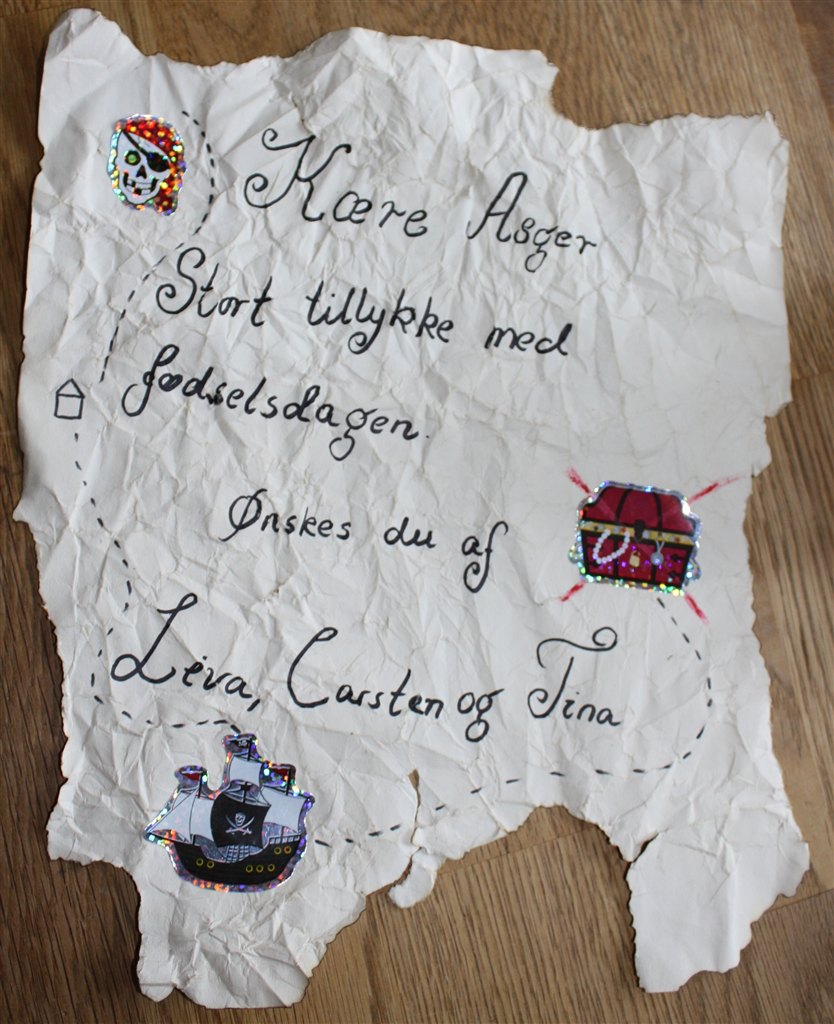 Kære Asger
Stort tillykke med
fødselsdagen.
Ønskes du af
Liva, Carsten og Tina